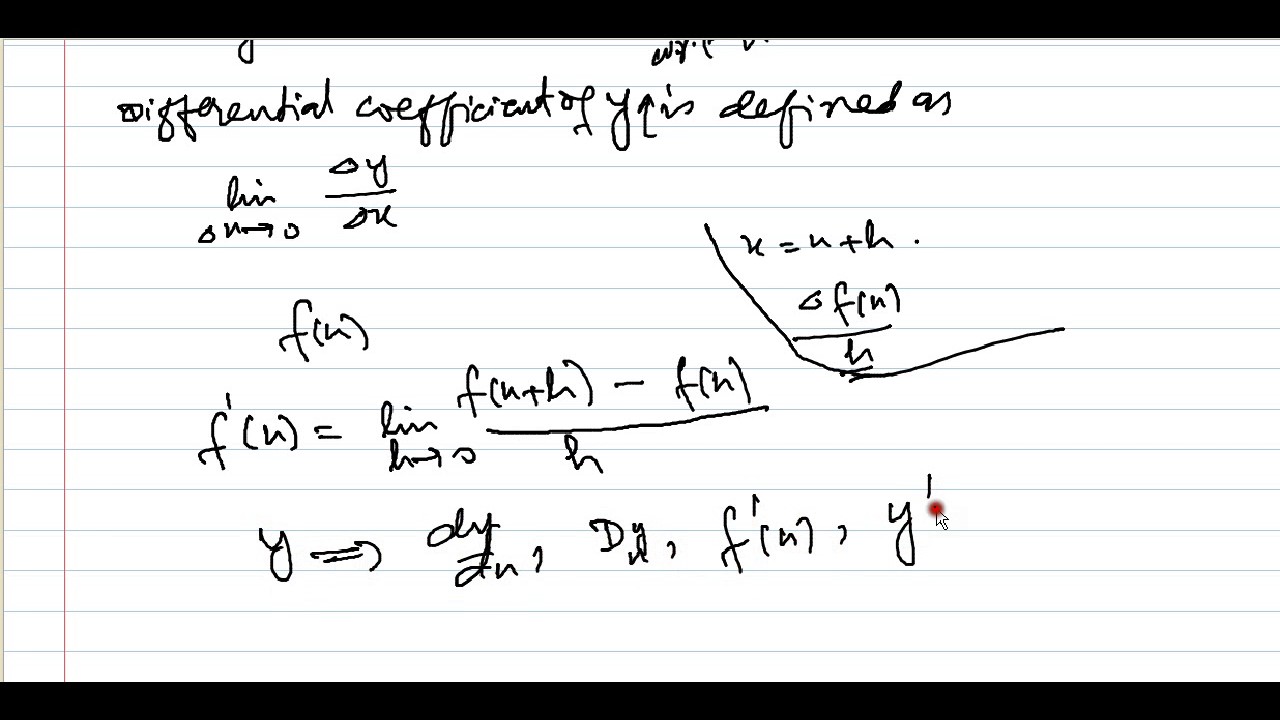 y w.r.t x
Differential coefficient of y is defined as
lim Δx→0 Δy/Δx
x = x+h .
Δf(x)/h
f(x)
f'(x) = lim h→0 f(x+h) - f(x)/h
y ⟹ dy/dx, Dy, f'(x), y'